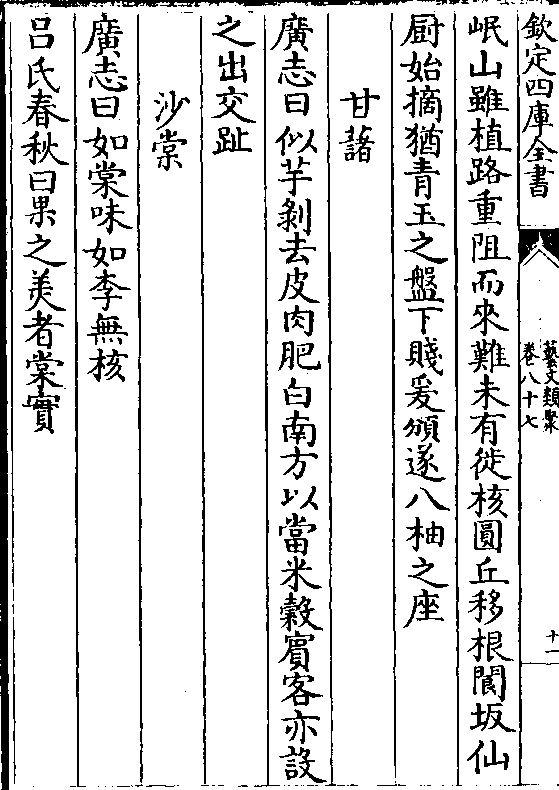 欽定四庫全書
藝文類聚
卷八十七
十一
岷山雖植路重阻而來難未有徙核圓丘移根閬坂仙
厨始摘猶青玉之盤下賤爰頒遂八柚之座
甘藷
廣志曰似芋剝去皮肉肥白南方以當米穀賓客亦設
之出交趾
沙棠
廣志曰如棠味如李無核
呂氏春秋曰果之美者棠實